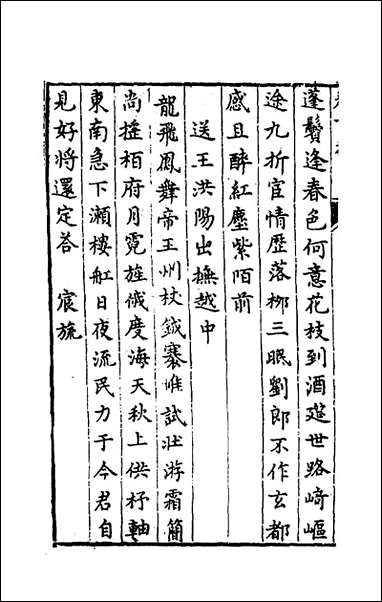 蓬鬢逢春色何意花枝到酒筵世路崎嶇
途九折宦情歷落柳三眠劉郎不作玄都
感且醉紅塵紫陌前
送王洪陽出撫越中
龍飛鳳舞帝王州杖鉞褰帷試壯游霜簡
尚搖栢府月霓旌俄度海天秋上供杼軸
東南急下瀨樓舡日夜流民力于今君自
見好將還定荅宸旒